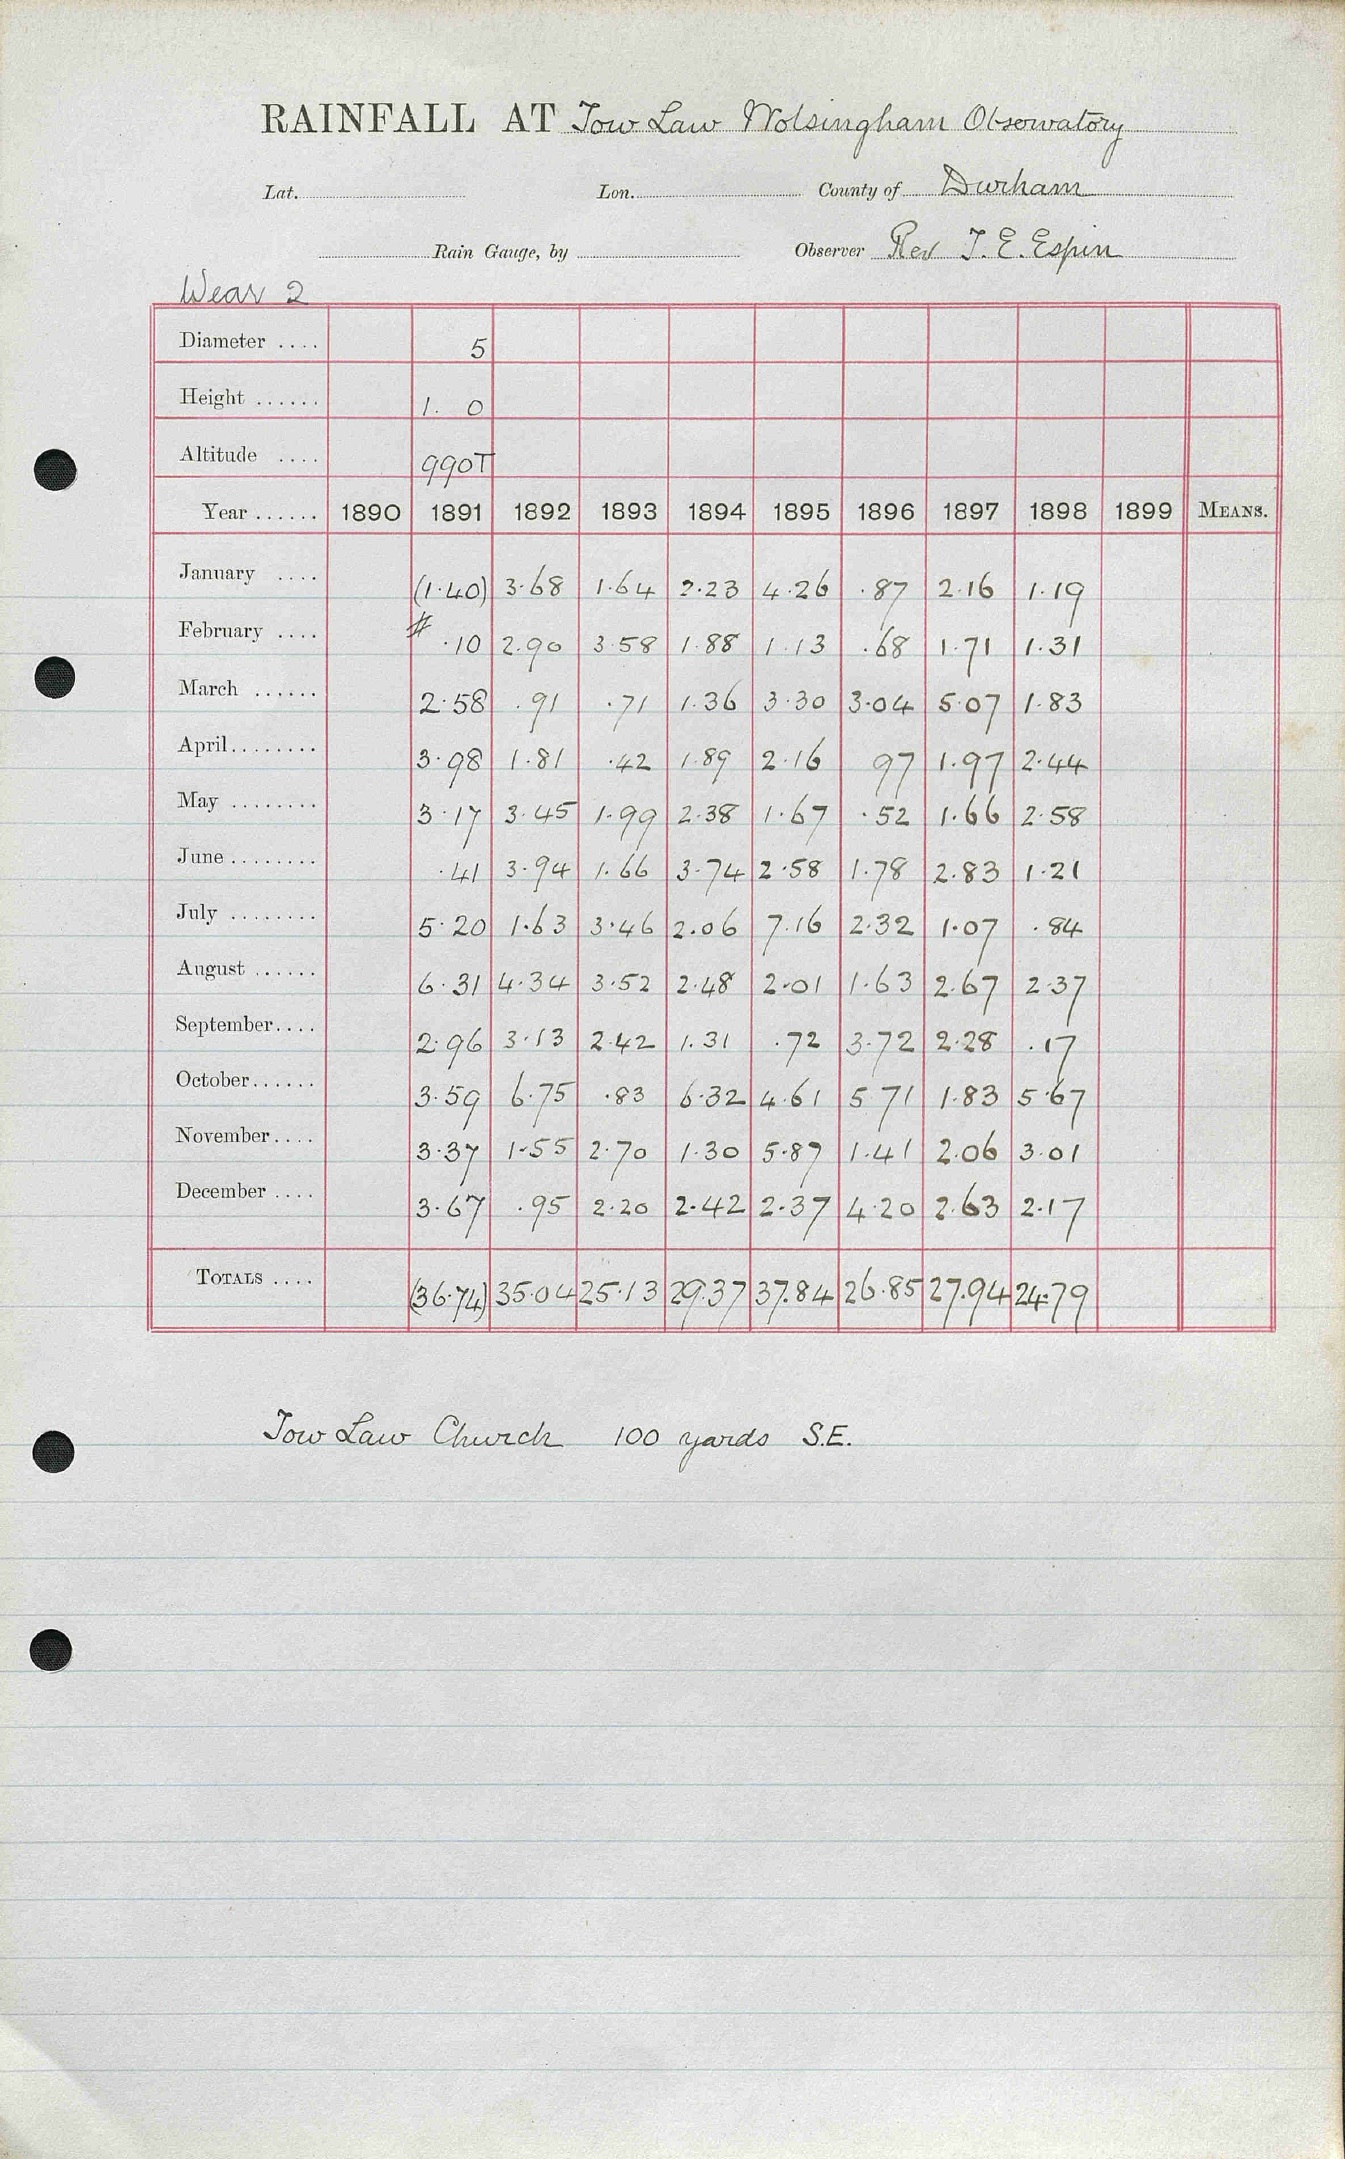 RAINFALL AT Tow Law Wolsingham Observatory
Lat. Lon. County of Durham
Rain Gauge, by Observer Rev T. E. Espin
Wear 2
Diameter .... 5
Height ...... 1. 0
Altitude .... 990T
Year ...... 1890 1891 1892 1893 1894 1895 1896 1897 1898 1899 MEANS.
January .... (1.40) 3.68 1.64 2.23 4.26 .87 2.16 1.19
February .... # .10 2.90 3.58 1.88 1.13 .68 1.71 1.31
March ...... 2.58 .91 .71 1.36 3.30 3.04 5.07 1.83
April........ 3.98 1.81 .42 1.89 2.16 97 1.97 2.44
May ........ 3.17 3.45 1.99 2.38 1.67 .52 1.66 2.58
June ........ .41 3.94 1.66 3.74 2.58 1.78 2.83 1.21
July ........ 5.20 1.63 3.46 2.06 7.16 2.32 1.07 .84
August ...... 6.31 4.34 3.52 2.48 2.01 1.63 2.67 2.37
September.... 2.96 3.13 2.42 1.31 .72 3.72 2.28 .17
October...... 3.59 6.75 .83 6.32 4.61 5 71 1.83 5.67
November.... 3.37 1.55 2.70 1.30 5.87 1.41 2.06 3.01
December .... 3.67 .95 2.20 2.42 2.37 4.20 2.63 2.17
TOTALS .... (36.74) 35.04 25.13 29.37 37.84 26.85 27.94 24.79
Tow Law Church 100 yards S.E.